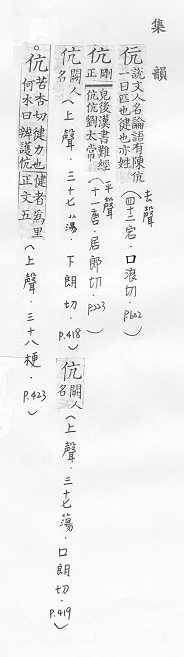 集韻
伉 說文人名論語有陳伉一曰匹也健也亦姓（去聲．四十二宕．口浪切．P.602）
伉 剛正皃後漢書難經伉伉劉太常（平聲．十一唐．居郎切．P.223）
伉 闕人名（上聲．三十七蕩．下朗切．P.418）
伉 闕人名（上聲．三十七蕩．口朗切．P.419）
。伉 苦杏切健力也健者為里何木曰辯護伉正文五（上聲．三十八梗．P.423）